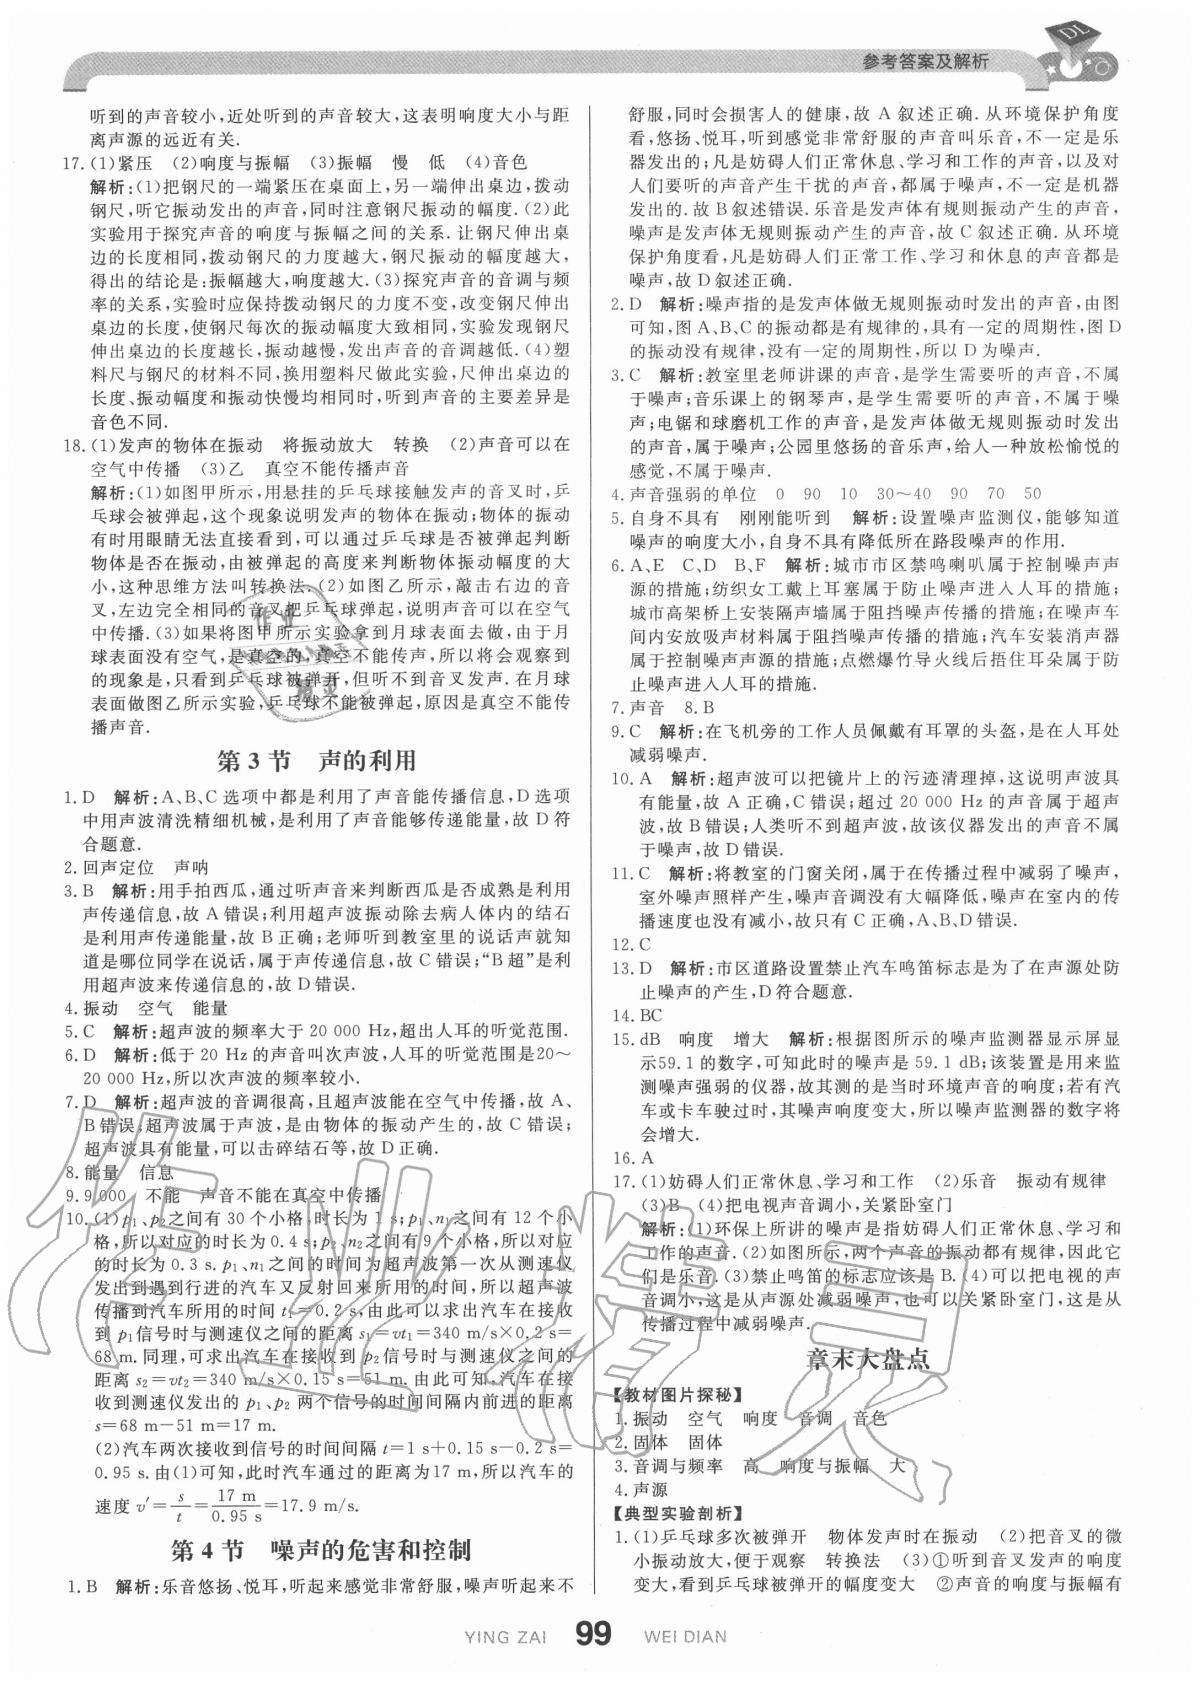 参考答案及解析
DL
听到的声音较小,近处听到的声音较大,这表明响度大小与距
离声源的远近有关.
17.(1)紧压 (2)响度与振幅 (3)振幅 慢 低 (4)音色
解析:(1)把钢尺的一端紧压在桌面上,另一端伸出桌边,拨动
钢尺,听它振动发出的声音,同时注意钢尺振动的幅度.(2)此
实验用于探究声音的响度与振幅之间的关系.让钢尺伸出桌
边的长度相同,拨动钢尺的力度越大,钢尺振动的幅度越大,
得出的结论是:振幅越大,响度越大.(3)探究声音的音调与频
率的关系,实验时应保持拨动钢尺的力度不变,改变钢尺伸出
桌边的长度,使钢尺每次的振动幅度大致相同,实验发现钢尺
伸出桌边的长度越长,振动越慢,发出声音的音调越低.(4)塑
料尺与钢尺的材料不同,换用塑料尺做此实验,尺伸出桌边的
长度、振动幅度和振动快慢均相同时,听到声音的主要差异是
音色不同.
18.(1)发声的物体在振动 将振动放大 转换 (2)声音可以在
空气中传播 (3)乙 真空不能传播声音
解析:(1)如图甲所示,用悬挂的乒乓球接触发声的音叉时,乒
乓球会被弹起,这个现象说明发声的物体在振动;物体的振动
有时用眼睛无法直接看到,可以通过乒乓球是否被弹起判断
物体是否在振动,由被弹起的高度来判断物体振动幅度的大
小,这种思维方法叫转换法.(2)如图乙所示,敲击右边的音
叉,左边完全相同的音叉把乒乓球弹起,说明声音可以在空气
中传播.(3)如果将图甲所示实验拿到月球表面去做,由于月
球表面没有空气,是真空的,真空不能传声,所以将会观察到
的现象是,只看到乒乓球被弹开,但听不到音叉发声.在月球
表面做图乙所示实验,乒乓球不能被弹起,原因是真空不能传
播声音.
第3节 声的利用
1.D 解析:A、B、C选项中都是利用了声音能传播信息,D选项
中用声波清洗精细机械,是利用了声音能够传递能量,故D符
合题意.
2.回声定位 声呐
3.B 解析:用手拍西瓜,通过听声音来判断西瓜是否成熟是利用
声传递信息,故A错误;利用超声波振动除去病人体内的结石
是利用声传递能量,故B正确;老师听到教室里的说话声就知
道是哪位同学在说话,属于声传递信息,故C错误;“B超”是利
用超声波来传递信息的,故D错误.
4.振动 空气 能量
5.C 解析:超声波的频率大于20 000 Hz,超出人耳的听觉范围.
6.D 解析:低于20 Hz的声音叫次声波,人耳的听觉范围是20～
20 000 Hz,所以次声波的频率较小.
7.D 解析:超声波的音调很高,且超声波能在空气中传播,故A、
B错误;超声波属于声波,是由物体的振动产生的,故C错误;
超声波具有能量,可以击碎结石等,故D正确.
8.能量 信息
9.9 000 不能 声音不能在真空中传播
10.(1)p₁、p₂之间有30个小格,时长为1 s;p₁、n₁之间有12个小
格,所以对应的时长为0.4 s;p₂、n₂之间有9个小格,所以对应
的时长为0.3 s.p₁、n₁之间的时间为超声波第一次从测速仪
发出到遇到行进的汽车又反射回来所用的时间,所以超声波
传播到汽车所用的时间t₁=0.2 s,由此可以求出汽车在接收
到p₁信号时与测速仪之间的距离s₁=vt₁=340 m/s×0.2 s=
68 m.同理,可求出汽车在接收到p₂信号时与测速仪之间的
距离s₂=vt₂=340 m/s×0.15 s=51 m.由此可知,汽车在接
收到测速仪发出的p₁、p₂两个信号的时间间隔内前进的距离
s=68 m-51 m=17 m.
(2)汽车两次接收到信号的时间间隔t=1 s+0.15 s-0.2 s=
0.95 s.由(1)可知,此时汽车通过的距离为17 m,所以汽车的
速度v′=s/t=17 m/0.95 s=17.9 m/s.
第4节 噪声的危害和控制
1.B 解析:乐音悠扬、悦耳,听起来感觉非常舒服,噪声听起来不
舒服,同时会损害人的健康,故A叙述正确.从环境保护角度
看,悠扬、悦耳,听到感觉非常舒服的声音叫乐音,不一定是乐
器发出的;凡是妨碍人们正常休息、学习和工作的声音,以及对
人们要听的声音产生干扰的声音,都属于噪声,不一定是机器
发出的.故B叙述错误.乐音是发声体有规则振动产生的声音,
噪声是发声体无规则振动产生的声音,故C叙述正确.从环境
保护角度看,凡是妨碍人们正常工作、学习和休息的声音都是
噪声,故D叙述正确.
2.D 解析:噪声指的是发声体做无规则振动时发出的声音,由图
可知,图A、B、C的振动都是有规律的,具有一定的周期性,图D
的振动没有规律,没有一定的周期性,所以D为噪声.
3.C 解析:教室里老师讲课的声音,是学生需要听的声音,不属
于噪声;音乐课上的钢琴声,是学生需要听的声音,不属于噪
声;电锯和球磨机工作的声音,是发声体做无规则振动时发出
的声音,属于噪声;公园里悠扬的音乐声,给人一种放松愉悦的
感觉,不属于噪声.
4.声音强弱的单位 0 90 10 30～40 90 70 50
5.自身不具有 刚刚能听到 解析:设置噪声监测仪,能够知道
噪声的响度大小,自身不具有降低所在路段噪声的作用.
6.A、E C、D B、F 解析:城市市区禁鸣喇叭属于控制噪声声
源的措施;纺织女工戴上耳塞属于防止噪声进入人耳的措施;
城市高架桥上安装隔声墙属于阻挡噪声传播的措施;在噪声车
间内安放吸声材料属于阻挡噪声传播的措施;汽车安装消声器
属于控制噪声声源的措施;点燃爆竹导火线后捂住耳朵属于防
止噪声进入人耳的措施.
7.声音 8.B
9.C 解析:在飞机旁的工作人员佩戴有耳罩的头盔,是在人耳处
减弱噪声.
10.A 解析:超声波可以把镜片上的污迹清理掉,这说明声波具
有能量,故A正确,C错误;超过20 000 Hz的声音属于超声
波,故B错误;人类听不到超声波,故该仪器发出的声音不属
于噪声,故D错误.
11.C 解析:将教室的门窗关闭,属于在传播过程中减弱了噪声,
室外噪声照样产生,噪声音调没有大幅降低,噪声在室内的传
播速度也没有减小,故只有C正确,A、B、D错误.
12.C
13.D 解析:市区道路设置禁止汽车鸣笛标志是为了在声源处防
止噪声的产生,D符合题意.
14.BC
15.dB 响度 增大 解析:根据图所示的噪声监测器显示屏显
示59.1的数字,可知此时的噪声是59.1 dB;该装置是用来监
测噪声强弱的仪器,故其测的是当时环境声音的响度;若有汽
车或卡车驶过时,其噪声响度变大,所以噪声监测器的数字将
会增大.
16.A
17.(1)妨碍人们正常休息、学习和工作 (2)乐音 振动有规律
(3)B (4)把电视声音调小,关紧卧室门
解析:(1)环保上所讲的噪声是指妨碍人们正常休息、学习和
工作的声音.(2)如图所示,两个声音的振动都有规律,因此它
们是乐音.(3)禁止鸣笛的标志应该是B.(4)可以把电视的声
音调小,这是从声源处减弱噪声,也可以关紧卧室门,这是从
传播过程中减弱噪声.
章末大盘点
【教材图片探秘】
1.振动 空气 响度 音调 音色
2.固体 固体
3.音调与频率 高 响度与振幅 大
4.声源
【典型实验剖析】
1.(1)乒乓球多次被弹开 物体发声时在振动 (2)把音叉的微
小振动放大,便于观察 转换法 (3)①听到音叉发声的响度
变大,看到乒乓球被弹开的幅度变大 ②声音的响度与振幅有
YING ZAI 99 WEI DIAN
作业精灵